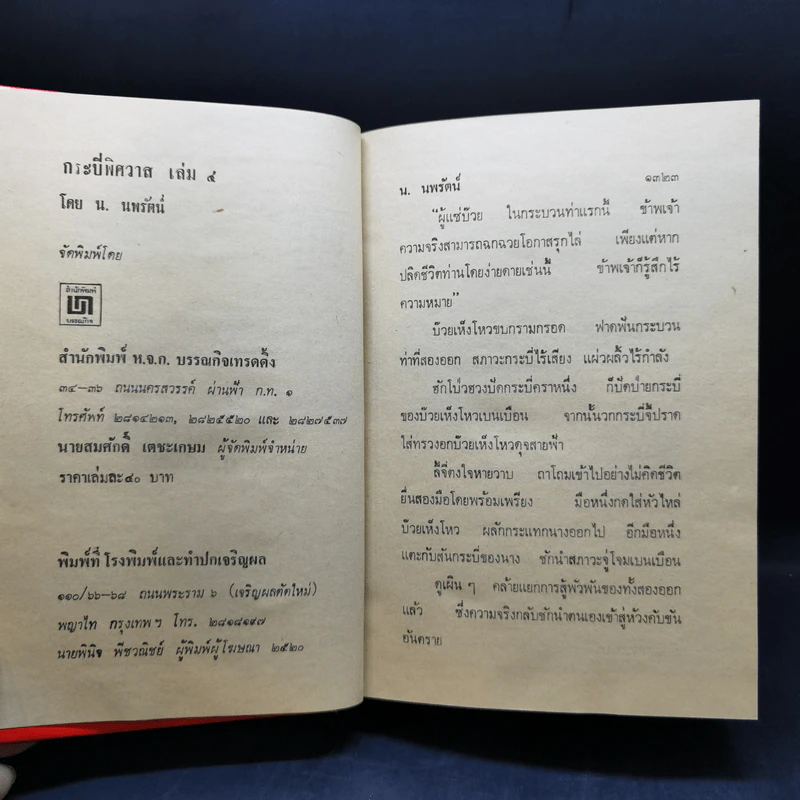 กระบี่พิศวาส เล่ม ๔
โดย น. นพรัตน์
จัดพิมพ์โดย
สำนักพิมพ์
บรรณกิจ
สำนักพิมพ์ ห.จ.ก. บรรณกิจเทรดดิ้ง
๓๔—๓๖ ถนนนครสวรรค์ ผ่านฟ้า ก.ท. ๑
โทรศัพท์ ๒๘๑๔๒๑๓, ๒๘๒๕๕๒๐ และ ๒๘๒๗๕๓๗
นายสมศักดิ์ เตชะเกษม ผู้จัดพิมพ์จำหน่าย
ราคาเล่มละ๔๐ บาท
พิมพ์ที่ โรงพิมพ์และทำปกเจริญผล
๑๑๐/๖๖—๖๘ ถนนพระราม ๖ (เจริญผลตัดใหม่)
พญาไท กรุงเทพฯ โทร. ๒๘๑๘๑๙๗
นายพินิจ พีชวณิชย์ ผู้พิมพ์ผู้โฆษณา ๒๕๒๐
น. นพรัตน์ ๑๓๒๓
"ผู้แซ่บ๊วย ในกระบวนท่าแรกนี้ ข้าพเจ้า
ความจริงสามารถฉกฉวยโอกาสรุกไล่ เพียงแต่หาก
ปลิดชีวิตท่านโดยง่ายดายเช่นนี้ ข้าพเจ้าก็รู้สึกไร้
ความหมาย"
บ๊วยเห็งโหวขบกรามกรอด ฟาดฟันกระบวน
ท่าที่สองออก สภาวะกระบี่ไร้เสียง แผ่วผลิ้วไร้กำลัง
ฮักโบ้วฮวงปัดกระบี่คราหนึ่ง ก็ปัดป่ายกระบี่
ของบ๊วยเห็งโหวเบนเบือน จากนั้นวกกระบี่จี้ปราด
ใส่ทรวงอกบ๊วยเห็งโหวดุจสายฟ้า
ลี้จี่ตงใจหายวาบ ถาโถมเข้าไปอย่างไม่คิดชีวิต
ยื่นสองมือโดยพร้อมเพรียง มือหนึ่งกดใส่หัวไหล่
บ๊วยเห็งโหว ผลักกระแทกนางออกไป อีกมือหนึ่ง
แตะกับสันกระบี่ของนาง ชักนำสภาวะจู่โจมเบนเบือน
ดูเผิน ๆ คล้ายแยกการสู้พัวพันของทั้งสองออก
แล้ว ซึ่งความจริงกลับชักนำตนเองเข้าสู่ห้วงคับขัน
อันตราย